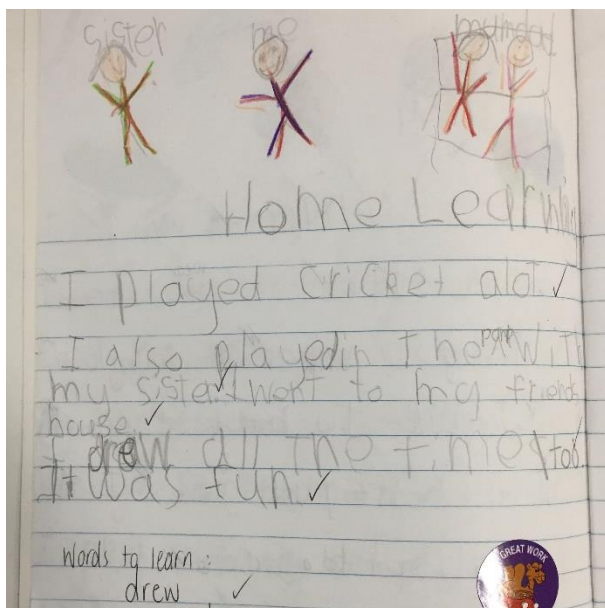 sister me
Home Learnin
I played cricket alot.
I also played in the park with
my sister. I went to my friends
house.
I drew all the time too.
It was fun.
Words to learn:
drew
GREAT WORK